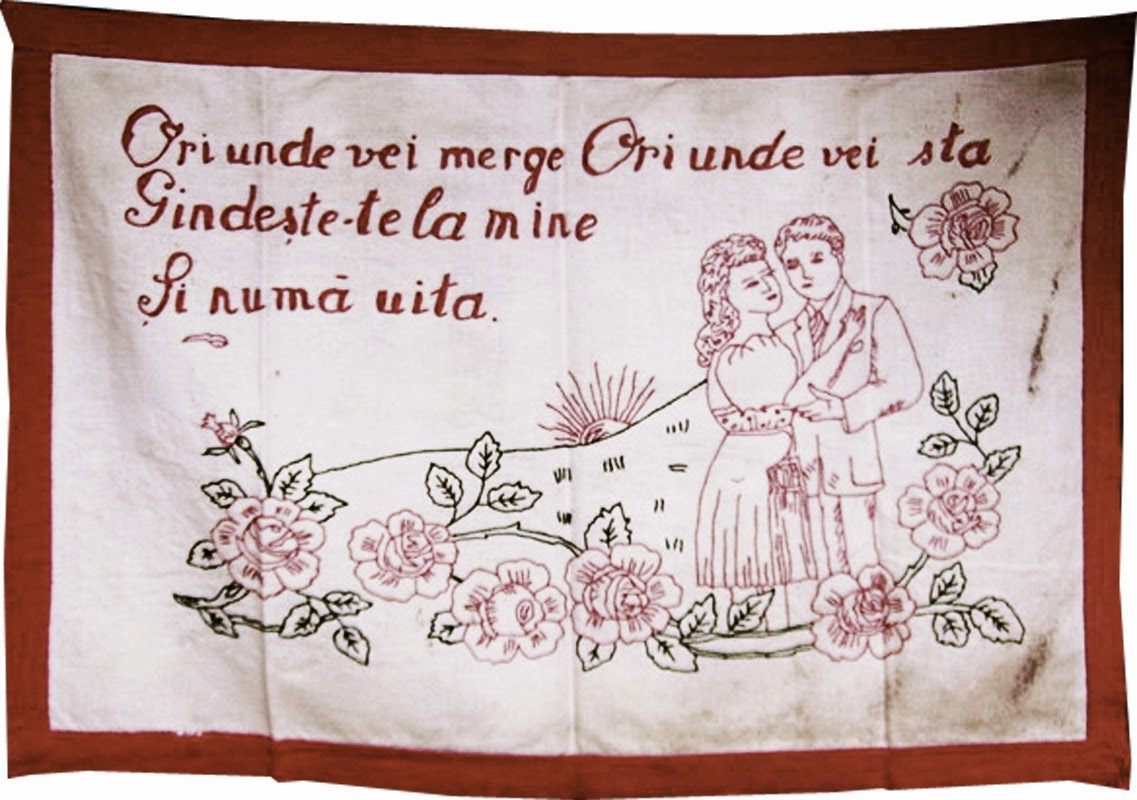 Ori unde vei merge Ori unde vei sta
Gindește-te la mine
Și numă uita.